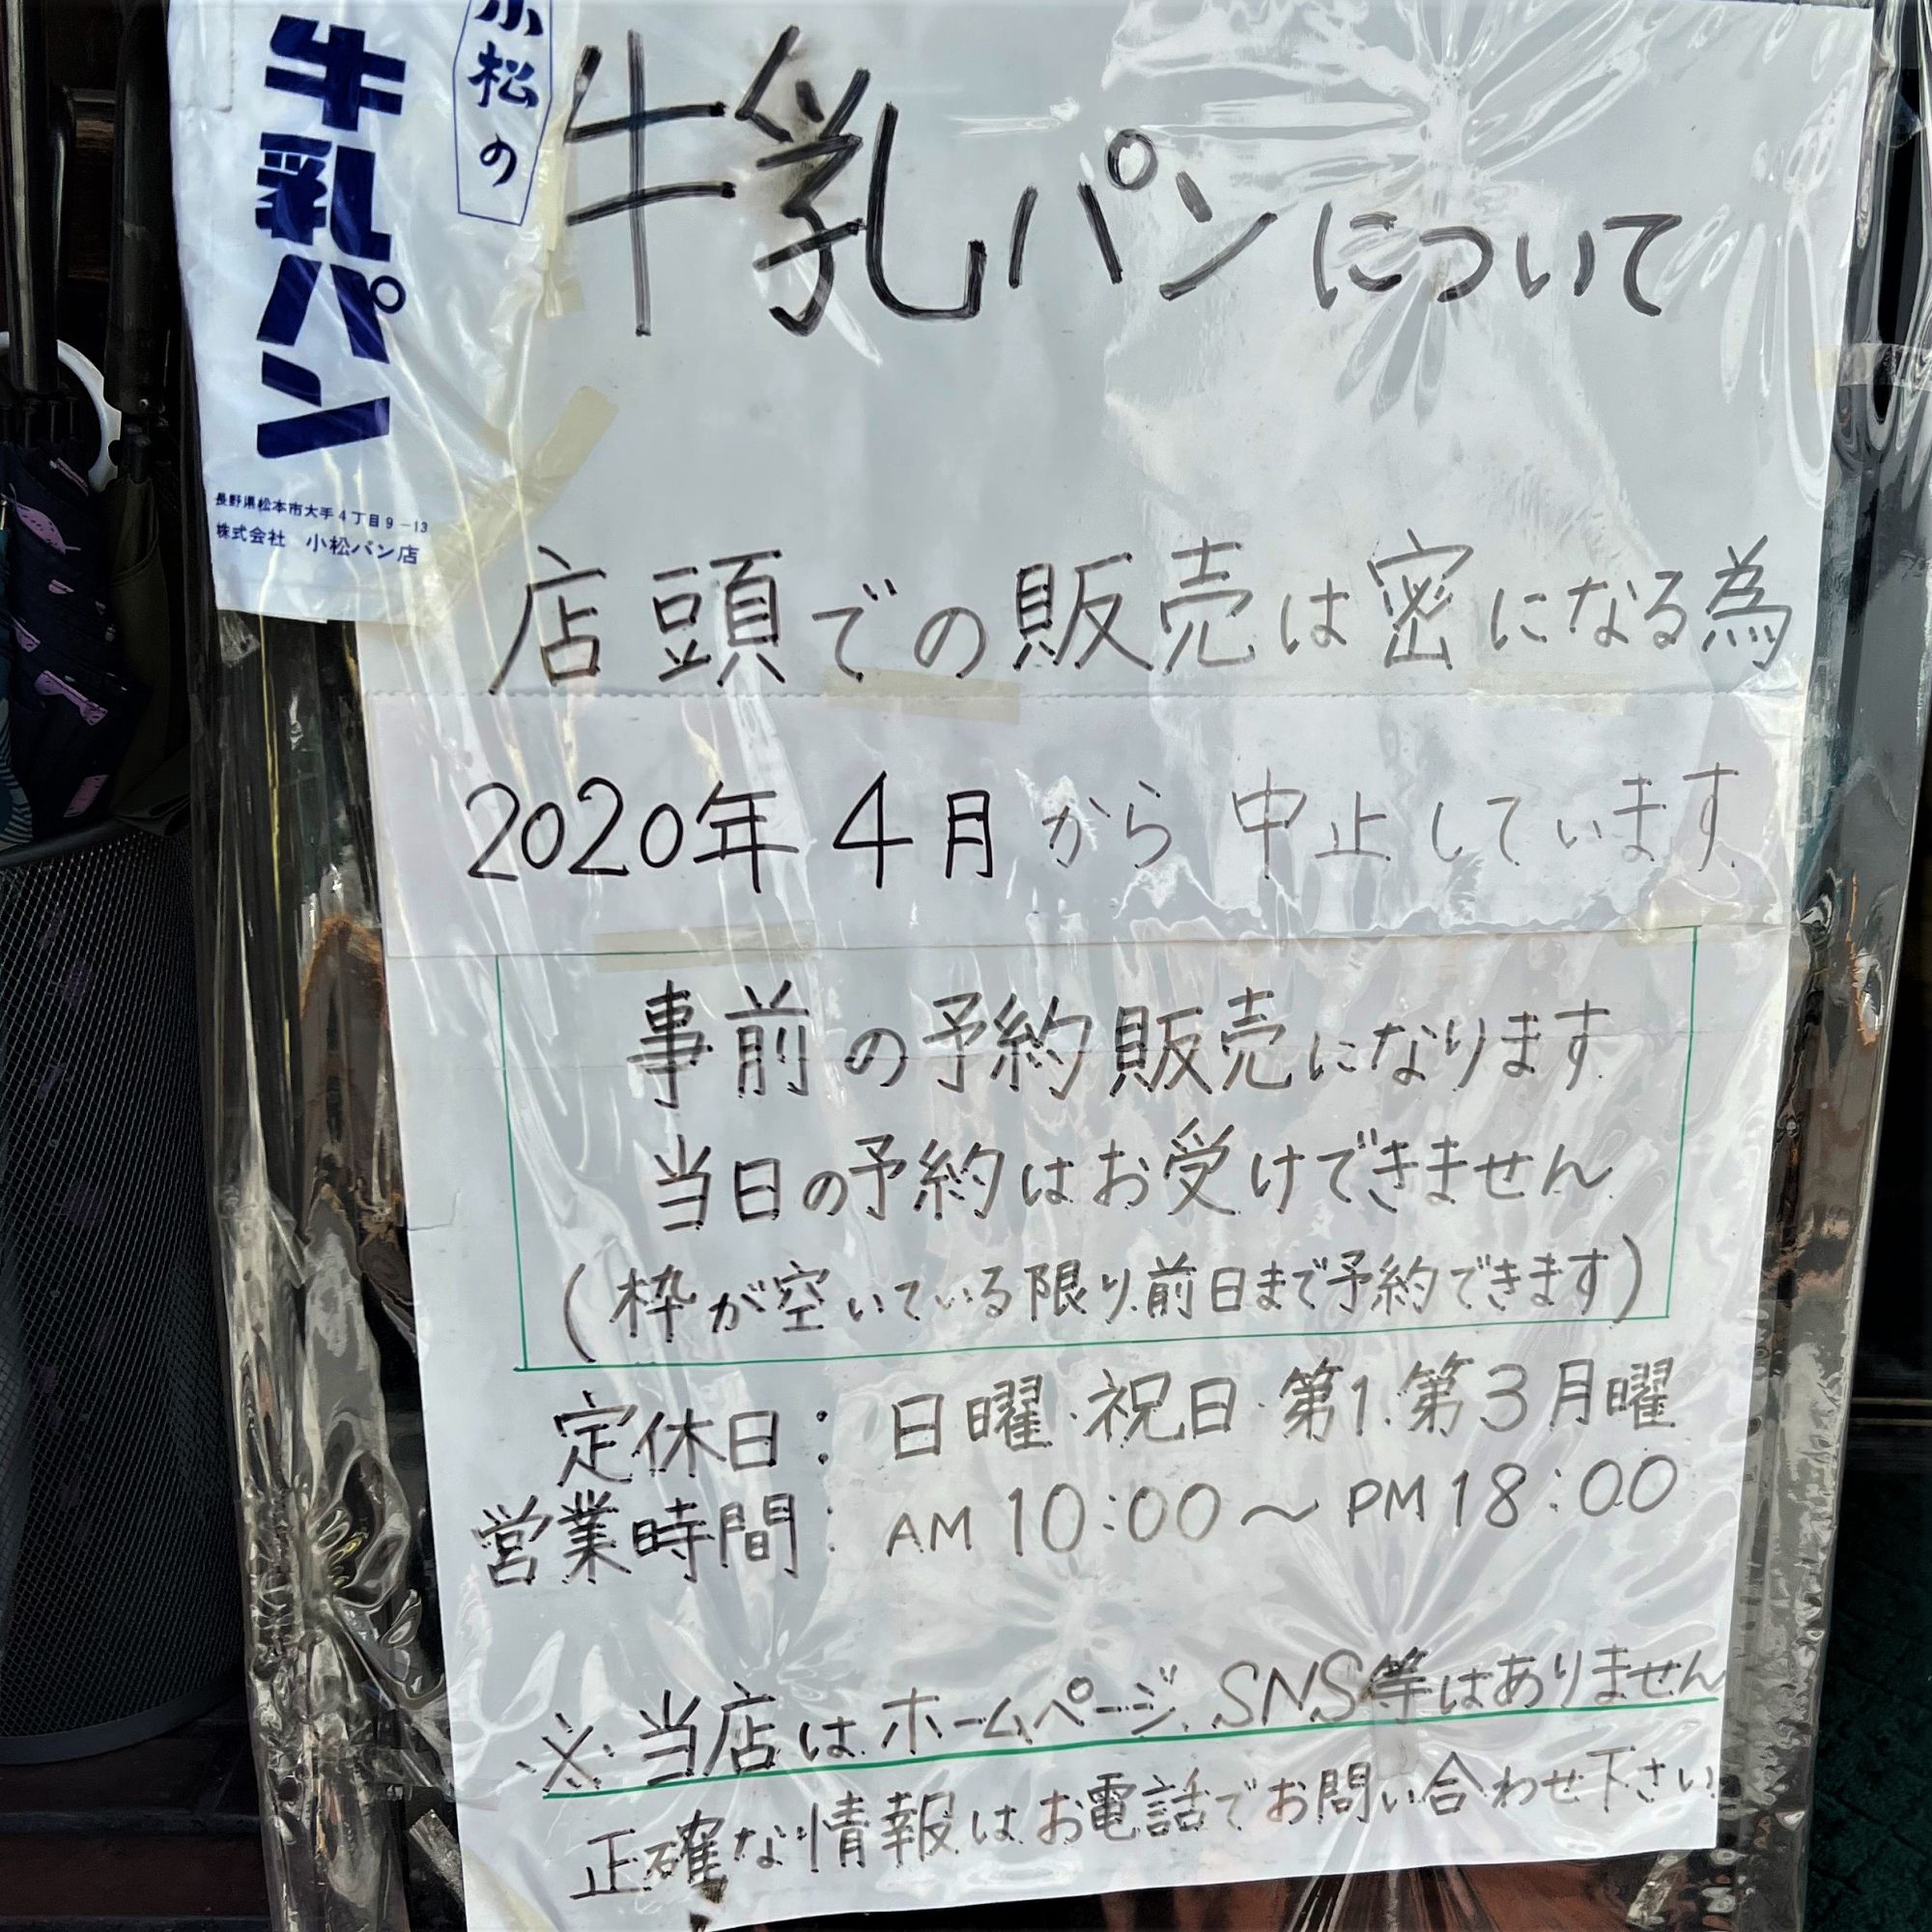 小松の
牛乳パン
長野県松本市大手4丁目9－13
株式会社　小松パン店
牛乳パンについて
店頭での販売は密になる為
2020年4月から中止しています
事前の予約販売になります
当日の予約はお受けできません
(枠が空いている限り前日まで予約できます)
定休日：日曜・祝日・第1・第3月曜
営業時間：AM10:00～PM18:00
※当店はホームページ、SNS等はありません
正確な情報はお電話でお問い合わせ下さい